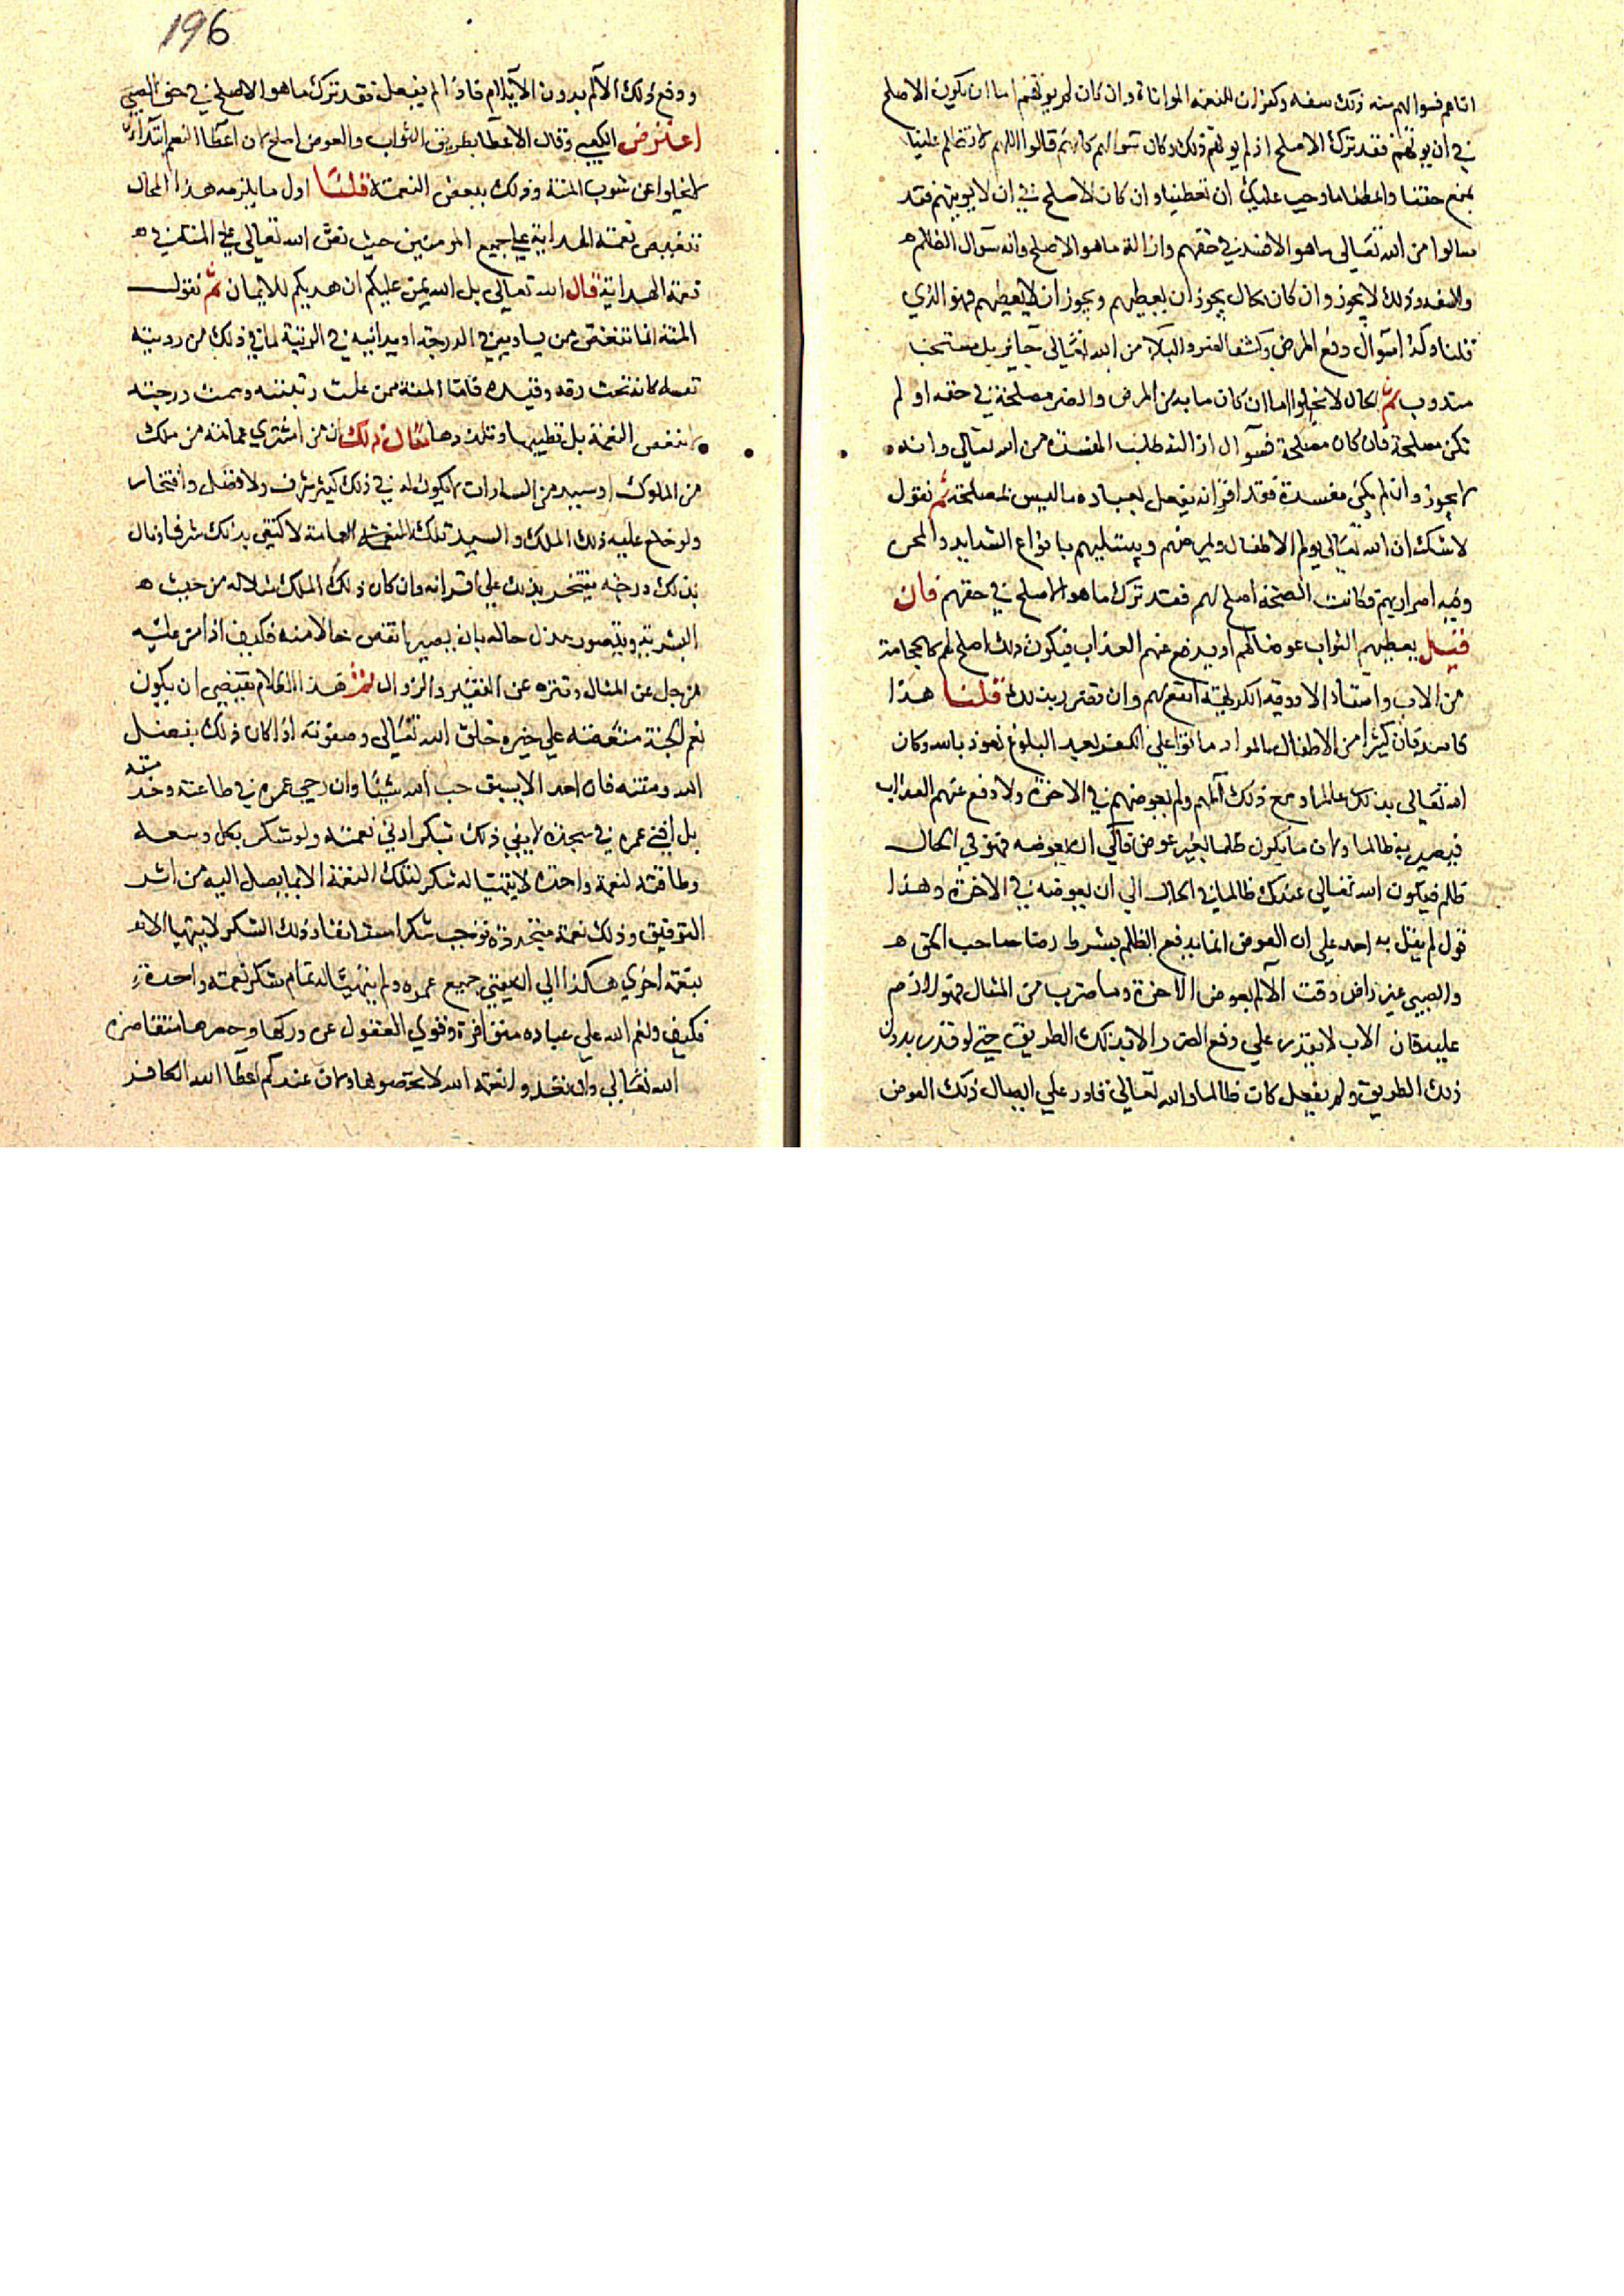 اتاهم فسوالهم منه ذلك سفه وكفران للنعمة الموتاة وان كان لم يوتهم اما ان يكون الاصلح
في ان يوتهم فقد ترك الاصلح اذ لم يوتهم ذلك وكان سوالهم كانهم قالوا اللهم لا تظلم علينا
بمنع حقنا واعطنا ما وجب عليك ان تعطينا وان كان الاصلح في ان لا يوتيهم فقد
سالوا من الله تعالى ما هو الافسد في حقهم وازالة ما هو الاصلح وانه سوال الظلم
والسفه وذلك لا يجوز وان كان بحال يجوز ان يعطيهم ويجوز ان لا يعطيهم فهو الذي
قلنا وكذا سوال دفع المرض وكشف الضر والبلاء من الله تعالى جايز بل مستحب
مندوب ثم الحال لا يخلوا اما ان كان ما به من المرض والضر مصلحة في حقه او لم
تكن مصلحة فان كان مصلحة فسوال ازالته طلب المفسدة من الله تعالى وانه
لا يجوز وان لم يكن مفسدة فقد اقر انه يفعل بعباده ما ليس بمصلحة ثم نقول
لا شك ان الله تعالى يولم الاطفال ويمرضهم ويبتليهم بانواع الشدايد والمحن
وفيه اضرار بهم وكانت الصحة اصلح لهم فقد ترك ما هو الاصلح في حقهم فان
قيل يعطيهم الثواب عوضا لهم او يدفع عنهم العذاب فيكون ذلك اصلح لهم كالحجامة
من الاب واسقاء الادوية الكريهة انفع لهم وان تضرر بذلك قلنا هذا
فاسد فان كثيرا من الاطفال ماتوا على الكفر بعد البلوغ نعوذ بالله وكان
الله تعالى بذلك عالما ومع ذلك آلمهم ولم يعوضهم في الاخرة ولا دفع عنهم العذاب
فيصير به ظالما ولان ما يكون ظلما بغير عوض فالى ان يعوضه فهو في الحال
ظلم فيكون الله تعالى عندك ظالما في الحال الى ان يعوضه في الاخرة وهذا
قول لم يقل به احد على ان العوض انما يدفع الظلم بشرط رضا صاحب الحق
والصبي غير راض وقت الالم بعوض الاخرة وما ضرب من المثال فهو لازم
عليه فان الاب لا يقدر على دفع الضرر الا بذلك الطريق حتى لو قدر بدون
ذلك الطريق ولم يفعل كان ظالما والله تعالى قادر على ايصال ذلك العوض
196
ودفع ذلك الالم بدون الايلام فاذا لم يفعل فقد ترك ما هو الاصلح في حق الصبي
اعترض الكعبي وقال الاعطا بطريق الثواب والعوض اصلح لان اعطا النعم ابتداء
لا يخلوا عن شوب المنة وذلك ينغص النعمة قلنا اول ما يلزمه هذا المحال
تنغيص نعمة الهداية على جميع المومنين حيث نص الله تعالى على المنة في
نعمة الهداية قال الله تعالى بل الله يمن عليكم ان هديكم للايمان ثم نقول
المنة انما تنغص من يساويه في الدرجة او يدانيه في الرتبة لما في ذلك من روية
نفسه كانه تحت رقه وقيده فاما المنة ممن علت رتبته وسمت درجته
لا تنغص النعمة بل تطيبها وتلذذها مثال ذلك ان من اشترى عمامة من ملك
من الملوك او سيد من السادات لا يكون له في ذلك كثير شرف ولا فضل وافتخار
ولو خلع عليه ذلك الملك والسيد تلك العمامة لاكتفى بذلك شرفا ونال
بذلك درجة يفتخر بذلك على اقرانه وان كان ذلك الملك مثلا له من حيث
البشرية ويتصور عزل حاله بان يصير انقص حالا منه فكيف اذا من عليه
من جل عن المثال وتنزه عن التغير والزوال ثم هذا الكلام يقتضي ان يكون
نعم الجنة منغصة على خيرة خلق الله تعالى وصفوته اذا كان ذلك بفضل
الله ومنته فان احد الا يستوجب على الله شيئا وان زجى عمره في طاعته وخدمته
بل افنى عمره في سجدة لا يفي ذلك بشكر ادنى نعمته ولو شكر بكل وسعه
وطاقته لنعمة واحدة لا يتهيا له شكر لتلك النعمة الا بما يصل اليه من الله
التوفيق وذلك نعمة متجددة توجب شكرا مستانفا وذلك الشكر لا يتهيا الا
بنعمة اخرى هكذا الى ان يفنى جميع عمره ولم يتهيا له تمام شكر نعمة واحدة
فكيف ونعم الله على عباده متوافرة وقوى العقول عن دركها وحصرها متقاصرة
الله تعالى وان تعدوا نعمة الله لا تحصوها ولان عندكم اعطا الله الكافر